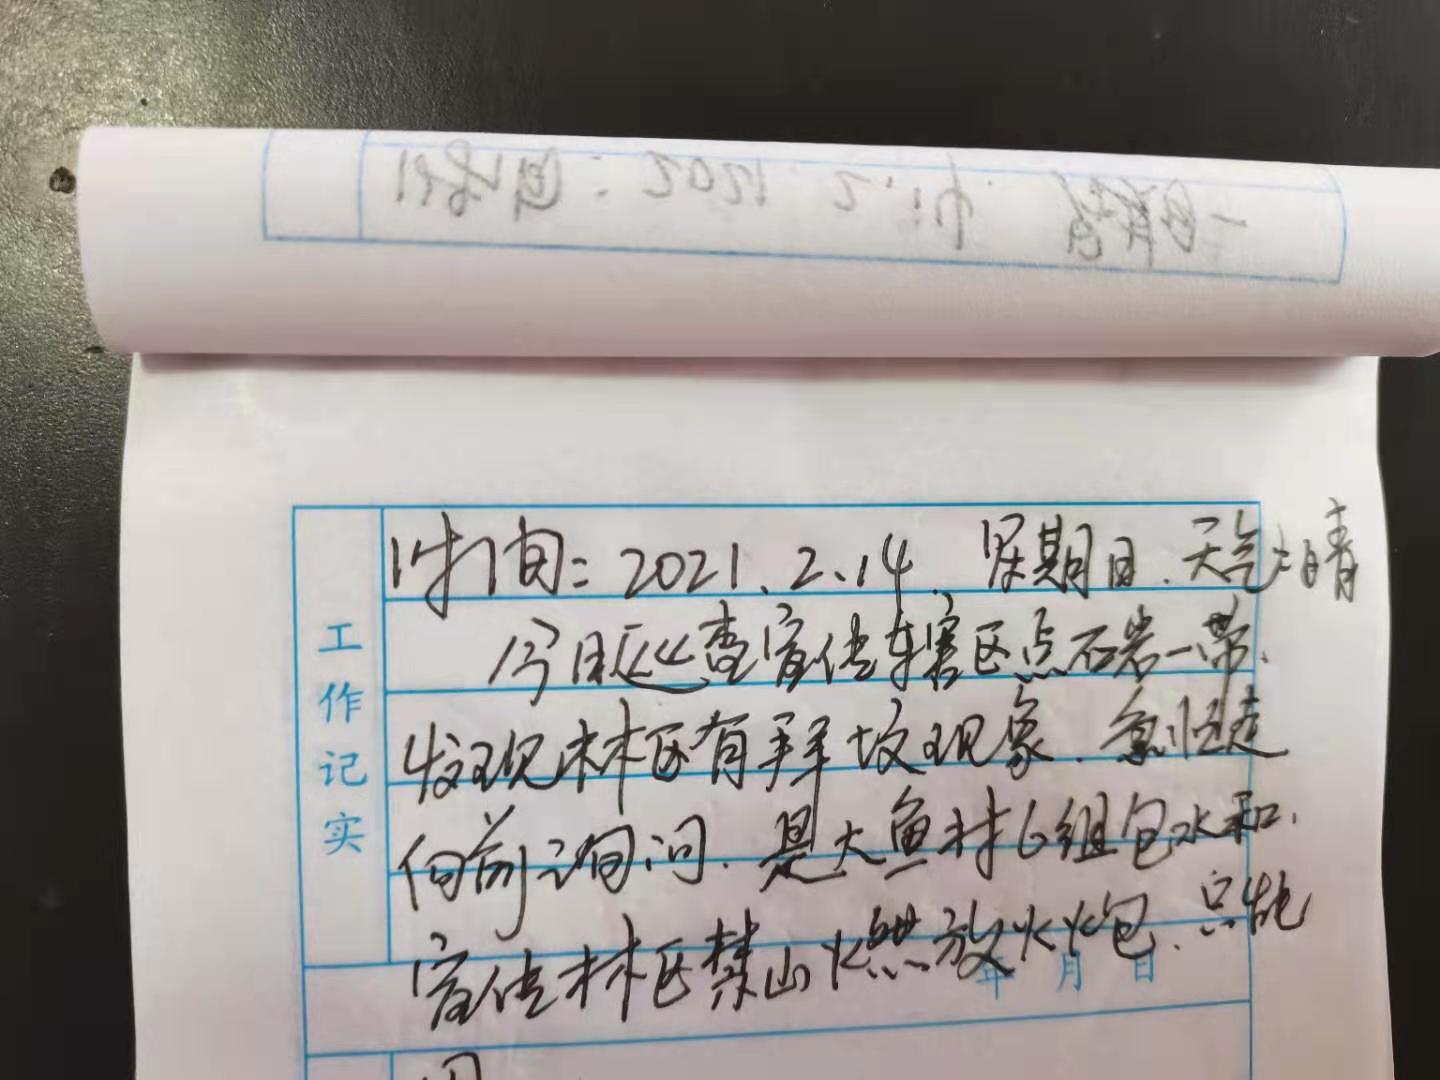 工作记实
时间：2021.2.14. 星期日.天气:晴
今日巡查宣传车辖区点石岩一带.
发现林区有拜坟现象.急忙走
向前询问.是大鱼村6组包水和.
宣传林区禁山燃放火火包.只能
年 月 日
用